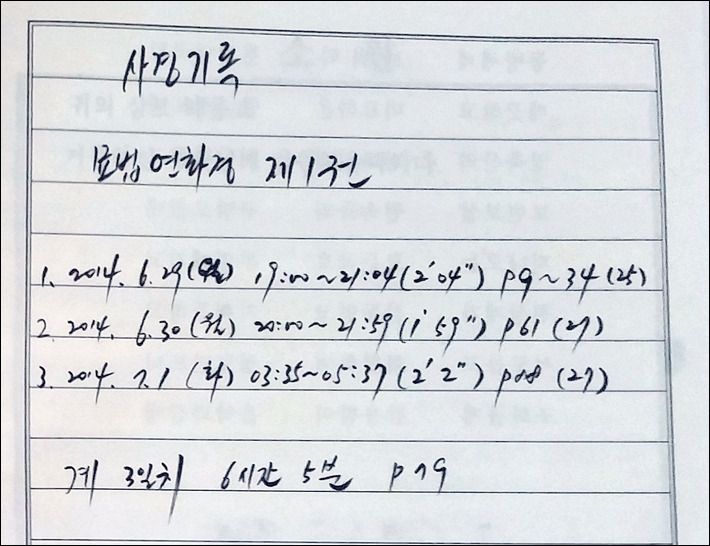 사경기록
묘법연화경 제1권
1. 2014. 6. 29 (일) 19:00~21:04 (2'04") P9~34 (25)
2. 2014. 6. 30 (월) 20:00~21:59 (1'59") P61 (27)
3. 2014. 7. 1 (화) 03:35~05:37 (2'2") P88 (27)
계 3일치 6시간 5분 P79